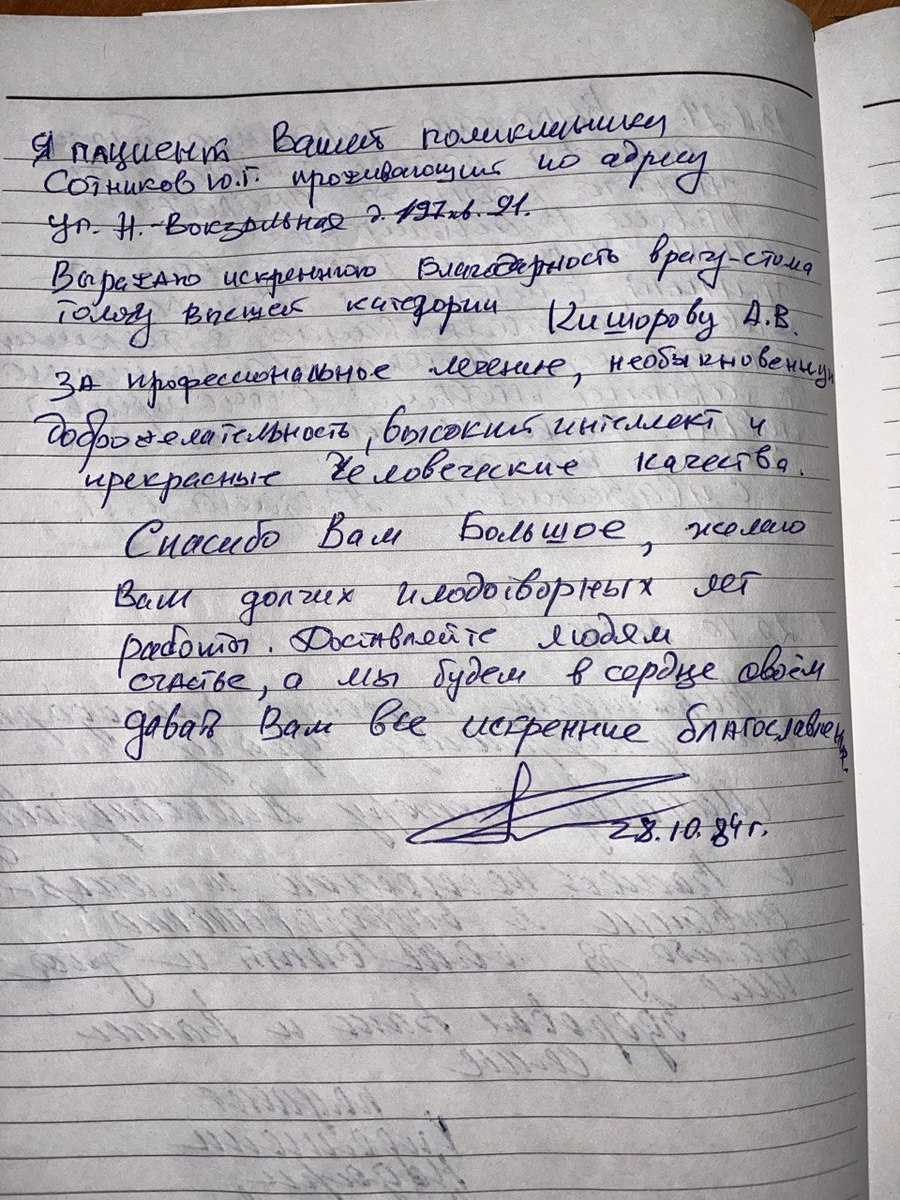 Я пациент Вашей поликлиники
Сотников Ю.Г. проживающий по адресу
ул. Н.-Вокзальная д. 197 кв. 91.
Выражаю искреннюю благодарность врачу-стома
тологу высшей категории Кишорову А.В.
за профессиональное лечение, необыкновенную
доброжелательность, высокий интеллект и
прекрасные человеческие качества.
Спасибо Вам большое, желаю
Вам долгих плодотворных лет
работы. Доставляйте людям
счастье, а мы будем в сердце своём
давать Вам все искренние благославления.
28.10.84 г.